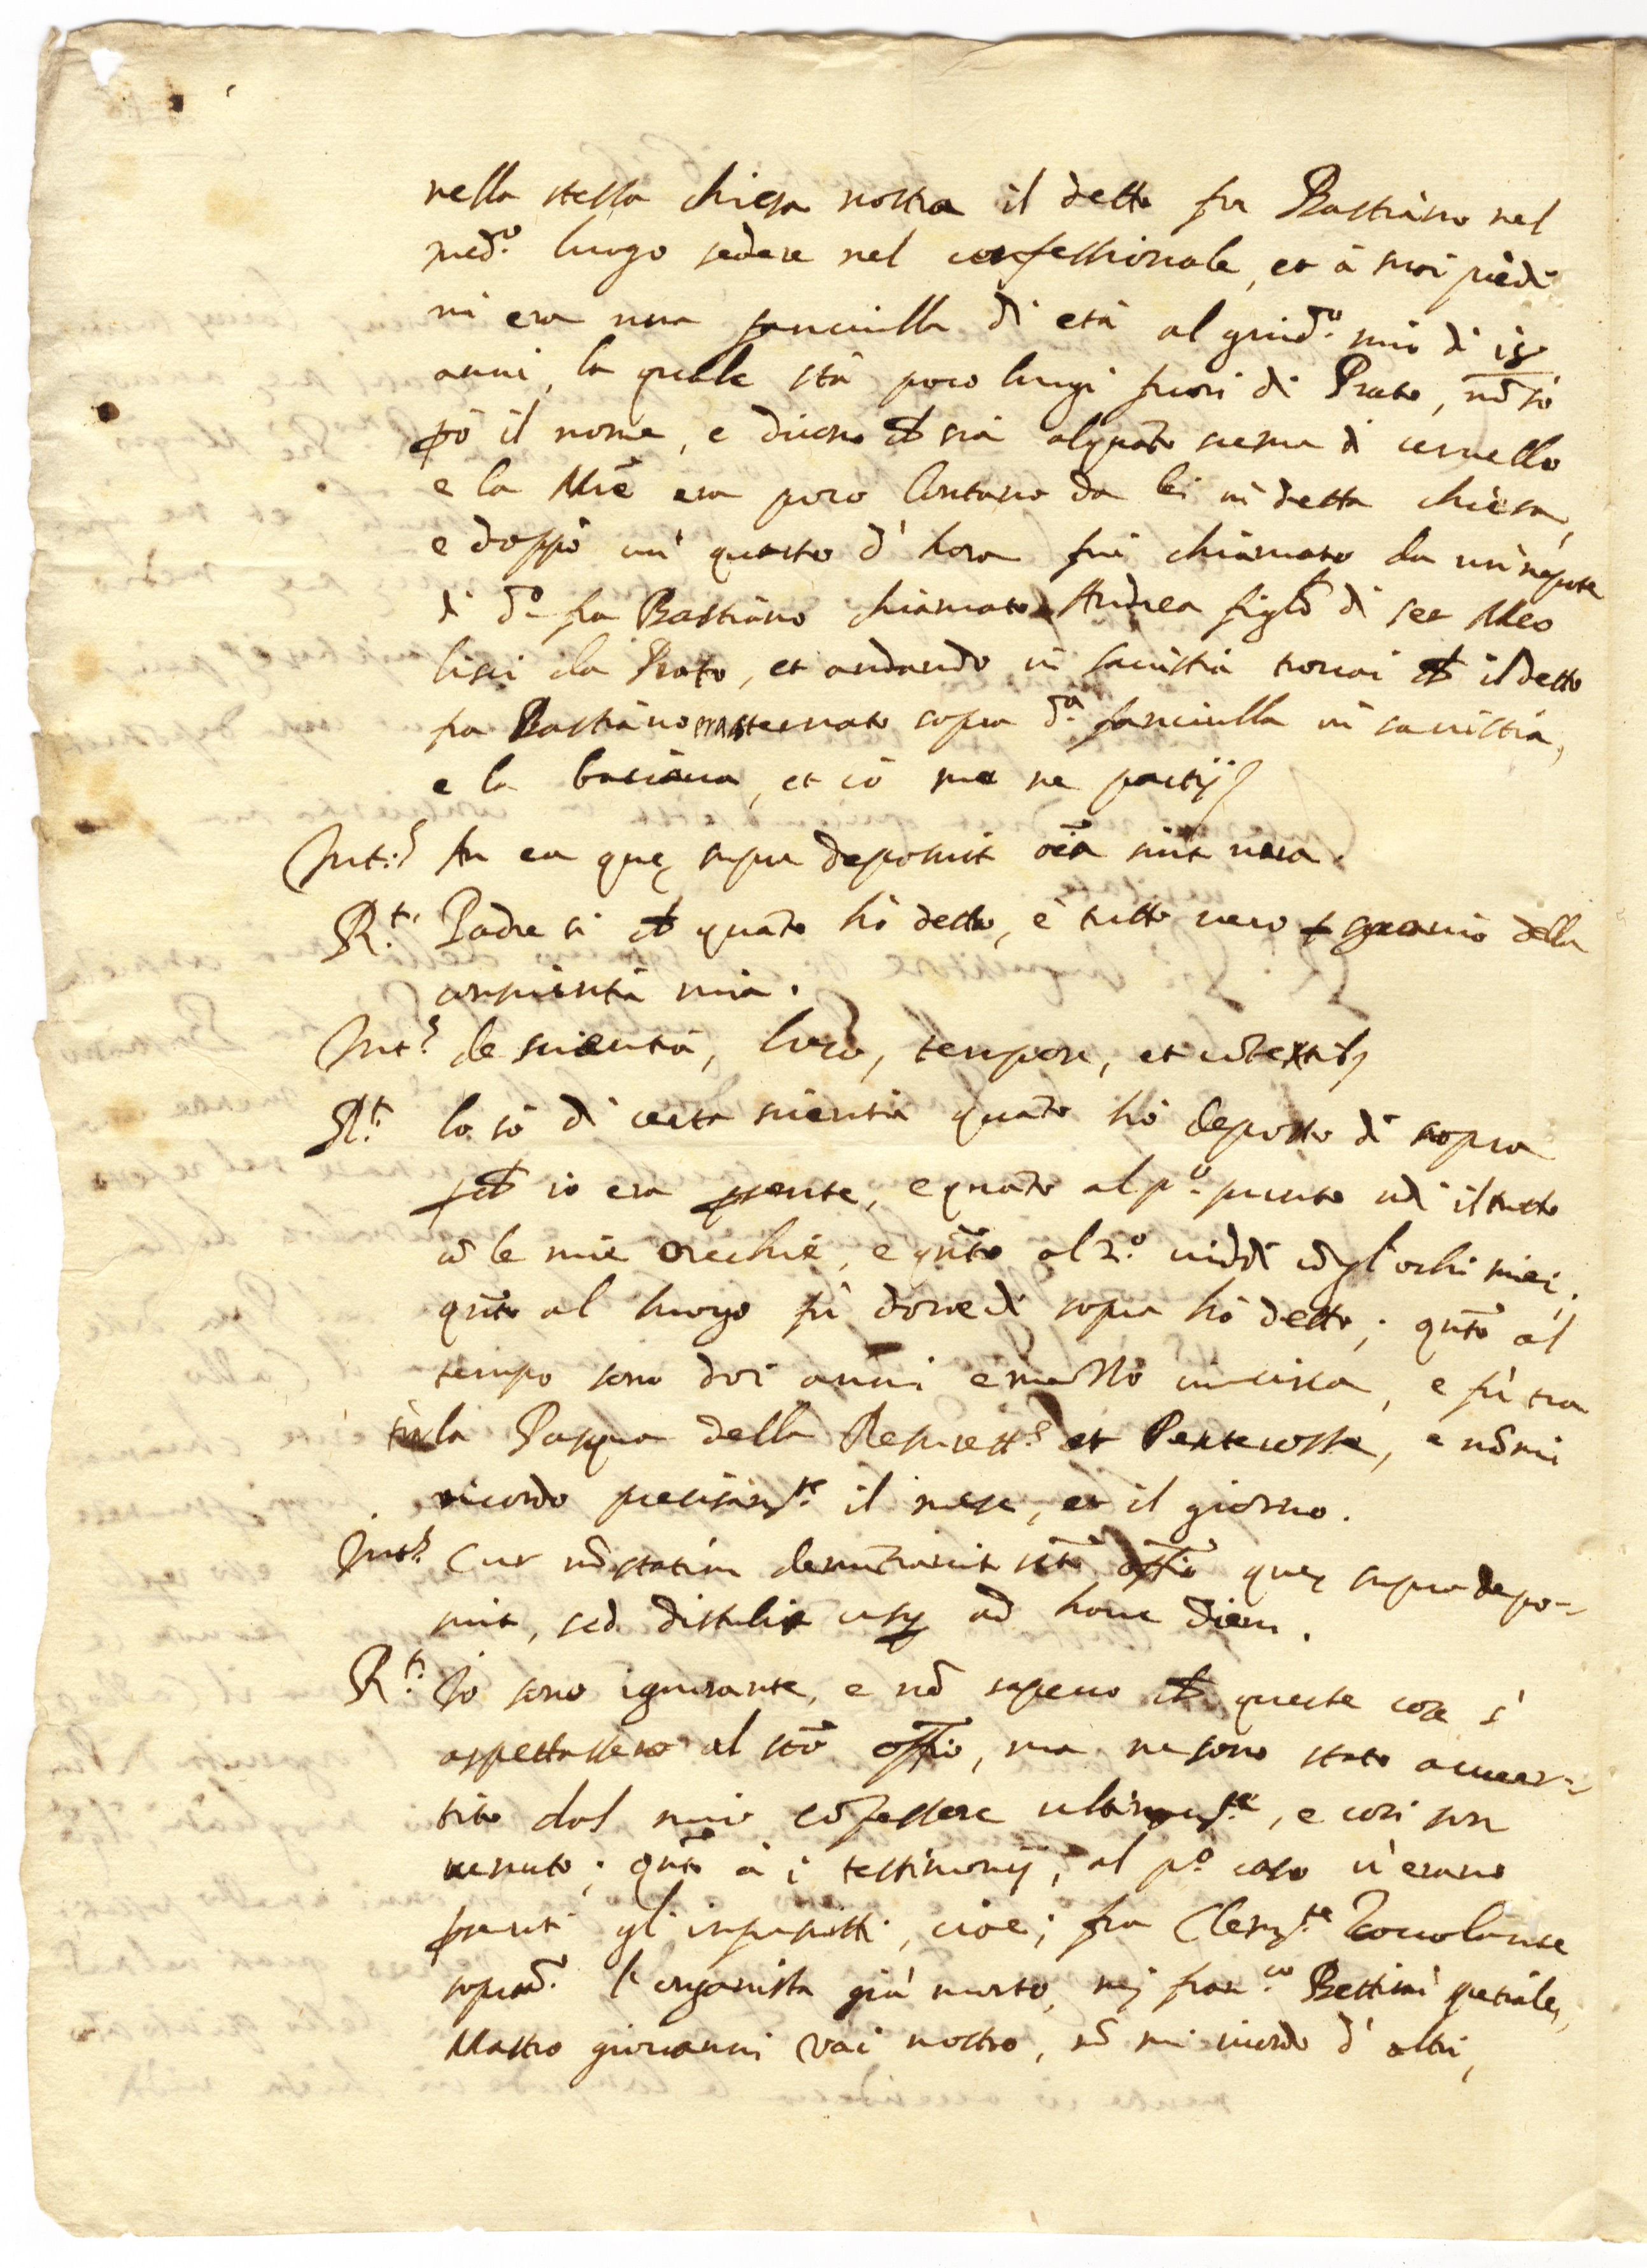 nella stessa chiesa nostra il detto fra Bastiano nel
med.º luogo sedere nel confessionale, et à suoi piedi
vi era una fanciulla di età al giud.º mio di
anni, la quale stà poco lungi fuori di Prato, nõ sò
però il nome, e dicono ch sia alquãto scema di ceruello
e la Mrẽ era poco lontano da lei in detta chiesa,
e doppò un' quarto d' hora fui chiamato da un' nepote
di d.º fra Bastiano chiamato Andrea figlõ di ser Meo
lisci da Prato, et andando in sacristia trouai ch il detto
fra Bastiano prosternato sopra d.ª fanciulla in sacristia,
e la baciaua, et iò me ne partij
Int.s An ea quę supra deposuit oĩa sint uera.
R.t Padre si ch quãto hò detto, è tutto uero p grauio della
conscientia mia.
Int.s de scientia, loco, tempore, et cõtestib;
R.t lo sò di certa scientia quãto hò deposto di sopra
pch io era pnte, e quãto al p.º punto udi il tutto
cõ le mie orechie, e qñto al 2.º uiddi cõ gl' ochi miei,
qñto al luogo fù doue di sopra hò detto; qñto al
tempo sono doi anni e mezzo in circa, e fù tra
la Pasqua della Resurett.e et Pentecoste, e nõ mi
ricordo precisam.te il mese, et il giorno.
Int.s Cur nõ statim denuntiauit sctõ offiõ quę supra depo-
suit, sed distulit usq ad hanc diem.
R.t Io sono ignorante, e nõ sapeuo ch queste cose s'
aspettassero al stõ offiõ, ma ne sono stato auuer-
tito dal mio cõfessore ultimam.te, e cosi son
uenuto; qñto à i testimonij, al p.º caso u' erano
pnti gl' infrascritti, cioè; fra Clem.te Zoccolante
soprad.º l' organista già morto, mj fran.co Bettini spetiale,
Mastro giouanni Vai nostro, nõ mi ricordo d' altri,